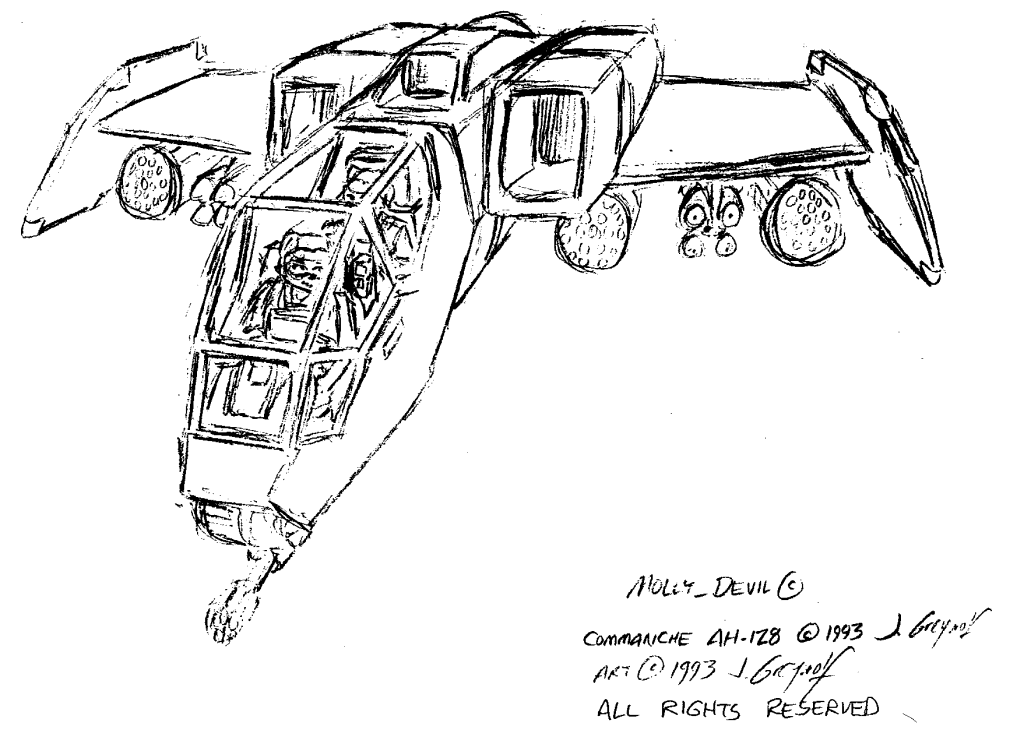 MOLLY_DEVIL ©
COMMANCHE AH-128 © 1993 J. Greywolf
ART © 1993 J. Greywolf
ALL RIGHTS RESERVED